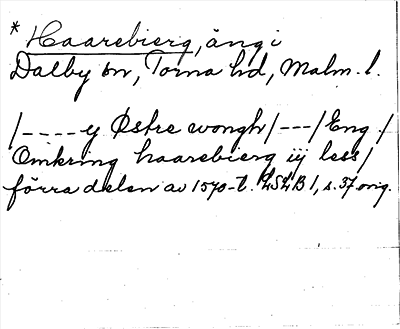 * Haarebierg, äng i
Dalby sn, Torna hd, Malm. l.
/----y Østre wongh/---/Eng/
Omkring haarebierg iij less/
förra delen av 1570-t. LSLB 1, s. 37 orig.